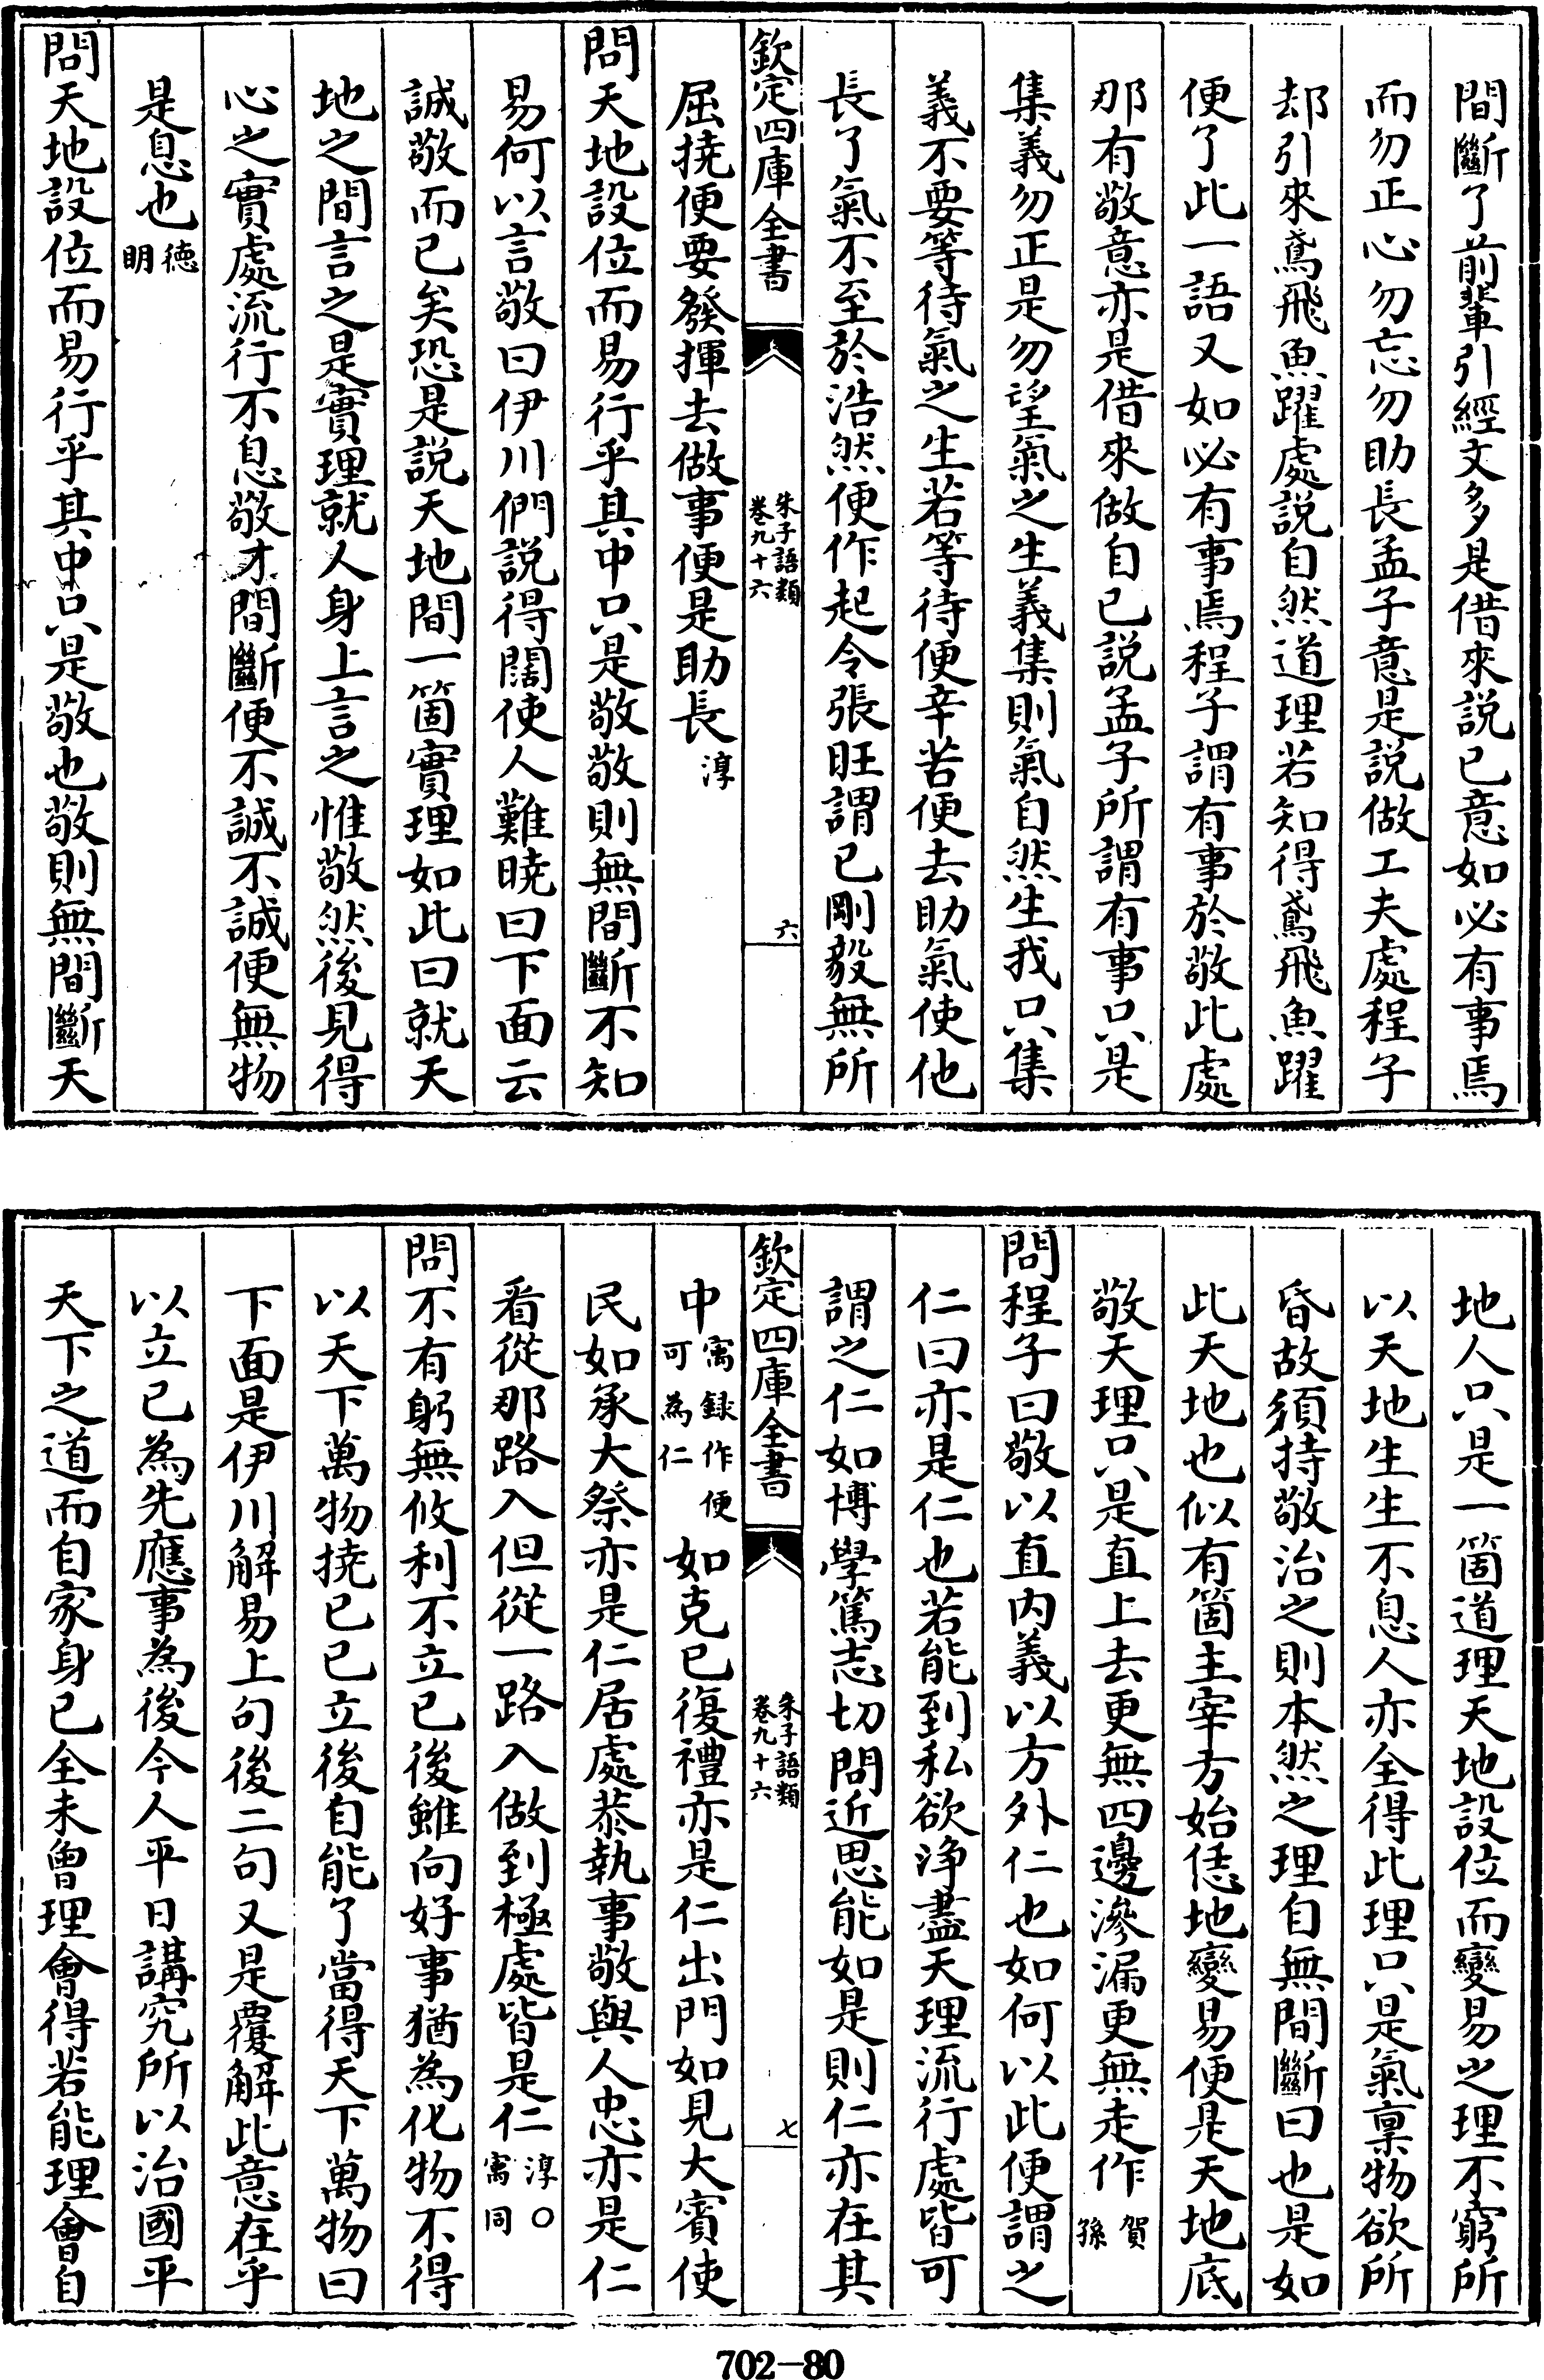 間斷了前輩引經文多是借來説已意如必有事焉
而勿正心勿忘勿助長孟子意是説做工夫處程子
却引來鳶飛魚躍處説自然道理若知得鳶飛魚躍
便了此一語又如必有事焉程子謂有事於敬此處
那有敬意亦是借來做自已説孟子所謂有事只是
集義勿正是勿望氣之生義集則氣自然生我只集
義不要等待氣之生若等待便辛苦便去助氣使他
長了氣不至於浩然便作起令張旺謂已剛毅無所
欽定四庫全書
朱子語類
卷九十六
六
屈撓便要發揮去做事便是助長淳
問天地設位而易行乎其中只是敬敬則無間斷不知
易何以言敬曰伊川們説得闊使人難曉曰下面云
誠敬而已矣恐是説天地間一箇實理如此曰就天
地之間言之是實理就人身上言之惟敬然後見得
心之實處流行不息敬才間斷便不誠不誠便無物
是息也德明
問天地設位而易行乎其中只是敬也敬則無間斷天
地人只是一箇道理天地設位而變易之理不窮所
以天地生生不息人亦全得此理只是氣稟物欲所
昏故須持敬治之則本然之理自無間斷曰也是如
此天地也似有箇主宰方始恁地變易便是天地底
敬天理只是直上去更無四邊滲漏更無走作賀孫
問程子曰敬以直内義以方外仁也如何以此便謂之
仁曰亦是仁也若能到私欲浄盡天理流行處皆可
謂之仁如博學篤志切問近思能如是則仁亦在其
欽定四庫全書
朱子語類
卷九十六
七
中寓録作便可為仁如克已復禮亦是仁出門如見大賓使
民如承大祭亦是仁居處恭執事敬與人忠亦是仁
看從那路入但從一路入做到極處皆是仁淳○寓同
問不有躬無攸利不立已後雖向好事猶為化物不得
以天下萬物撓已已立後自能了當得天下萬物曰
下面是伊川解易上句後二句又是覆解此意在乎
以立已為先應事為後今人平日講究所以治國平
天下之道而自家身已全未曾理會得若能理會自
702—80